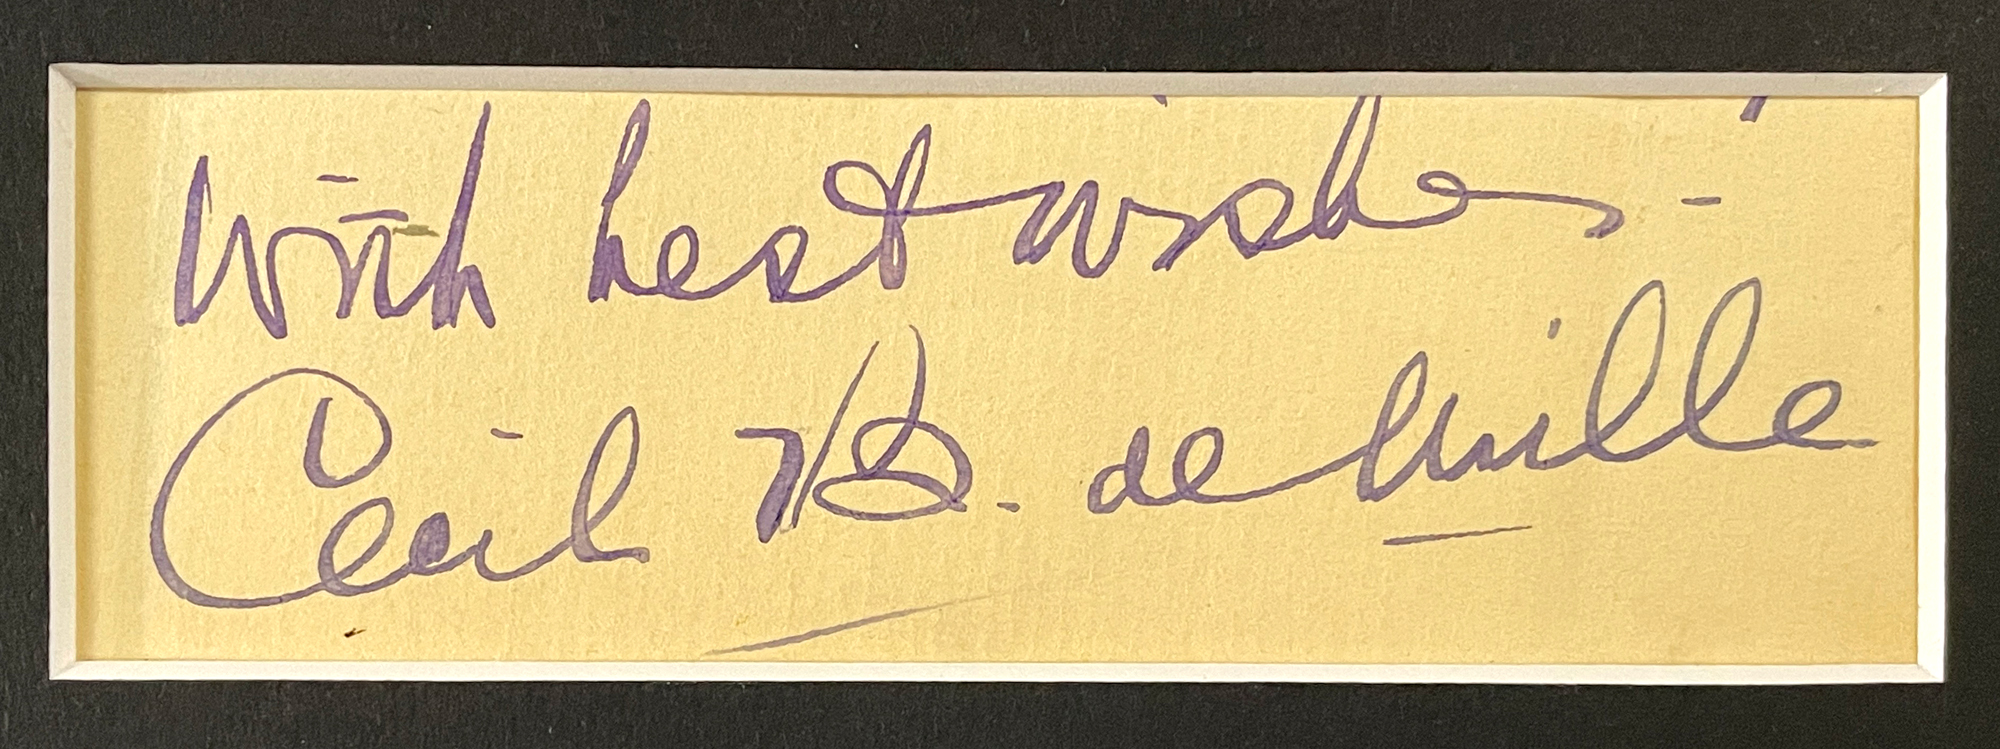 With best wishes -
Cecil B. de Mille